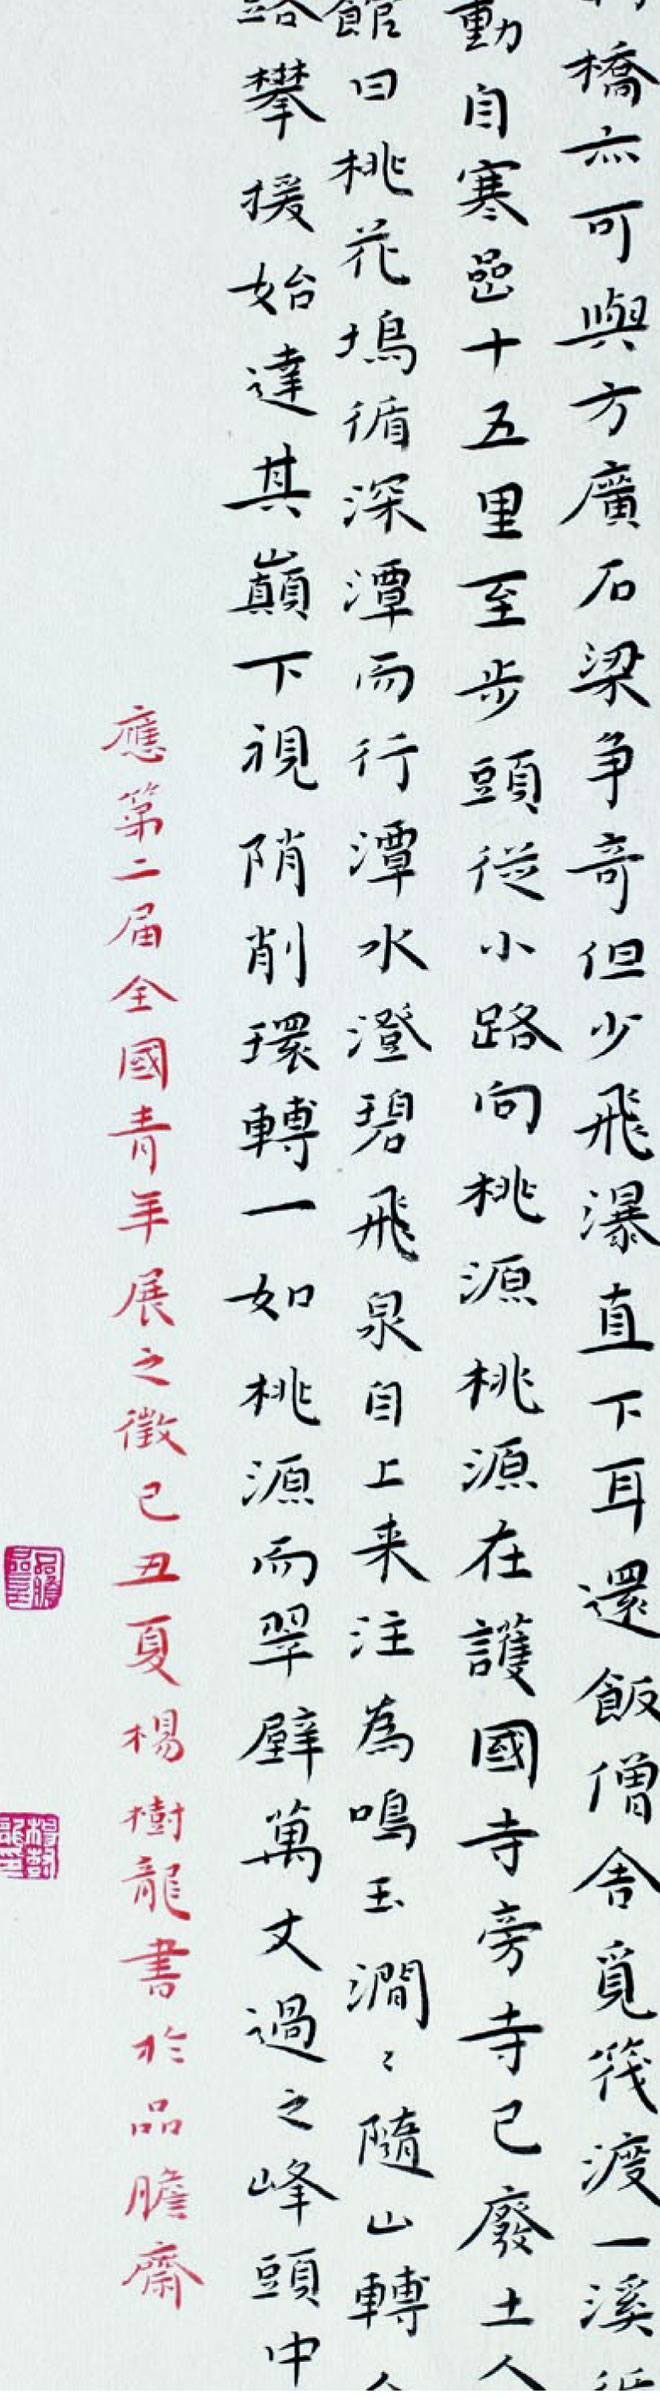 橋亦可與方廣石梁争奇但少飛瀑直下耳還飯僧舍覓筏渡一溪
動自寒嵒十五里至步頭從小路向桃源桃源在護國寺旁寺已廢土人
館曰桃花塢循深潭而行潭水澄碧飛泉自上来注為鳴玉澗〻隨山轉
路攀援始達其巔下視陗削環轉一如桃源而翠壁萬丈過之峰頭中
應第二届全國青年展之徵己丑夏楊樹龍書於品膽齋